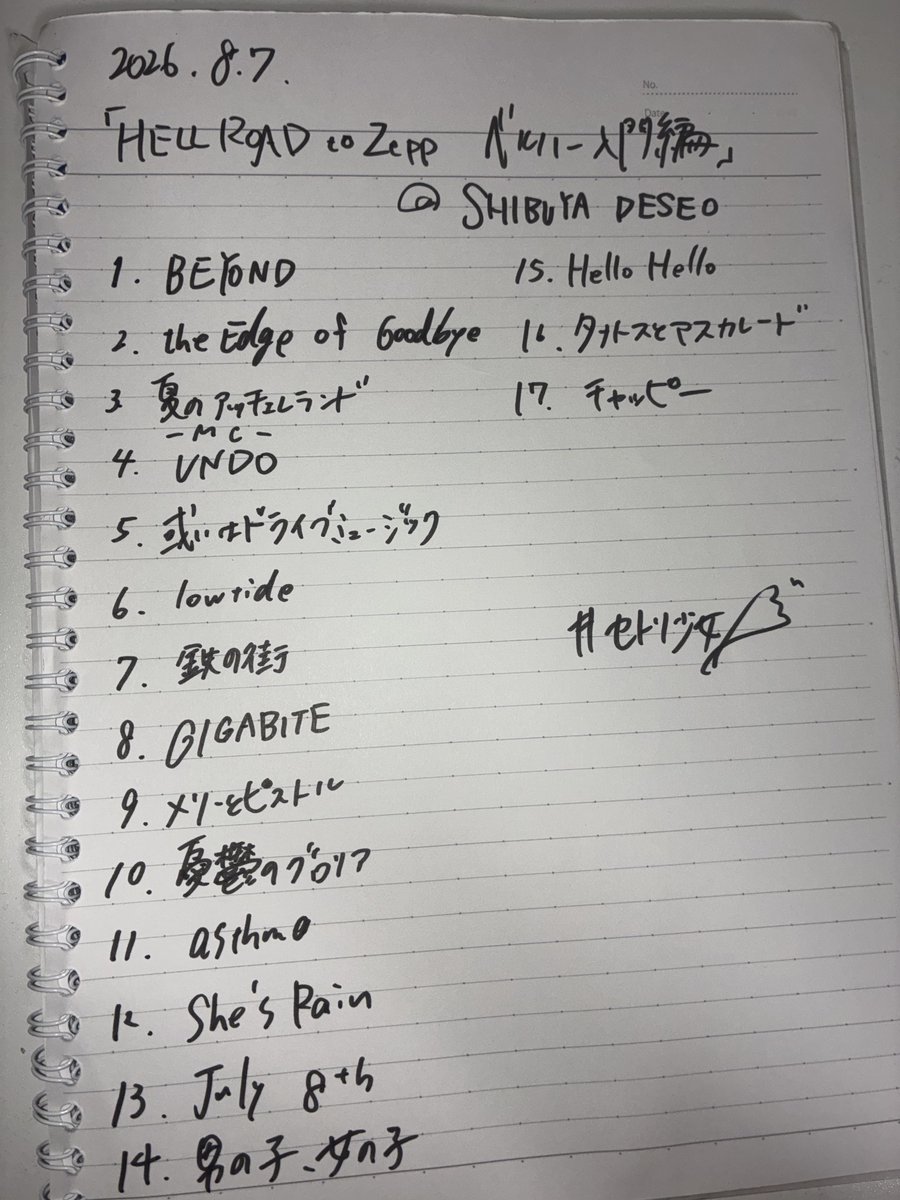 2026.8.7.
「HELL ROAD to Zepp ベルハー入門編」
@ SHIBUYA DESEO
No.
Date
1. BEYOND
2. the Edge of Goodbye
3. 夏のアッチェレランド
-MC-
4. UNDO
5. 或いはドライブミュージック
6. lowtide
7. 鉄の街
8. GIGABITE
9. メリーとピストル
10. 憂鬱のグロリア
11. asthma
12. She's Rain
13. July 8th
14. 男の子、女の子
15. Hello Hello
16. タナトスとマスカレード
17. チャッピー
#セトリ少女